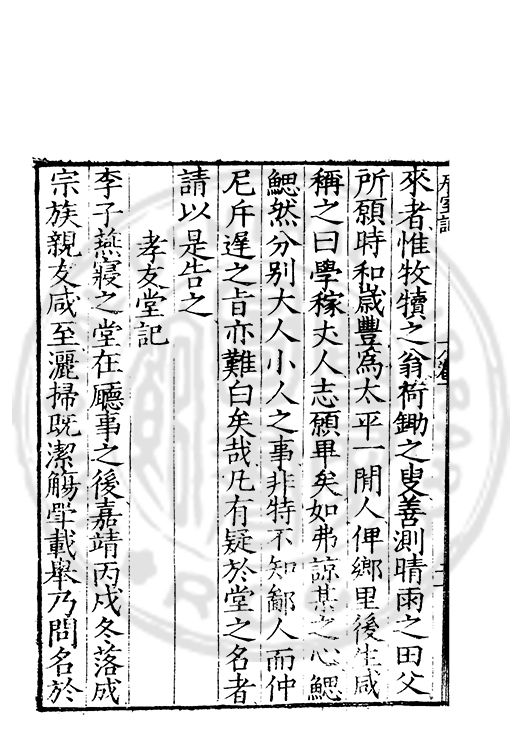 來者惟牧犢之翁荷鋤之叟善測晴雨之田父
所願時和歲豐爲太平一閒人俾鄉里後生咸
稱之曰學稼丈人志願畢矣如弗諒某之心鰓
鰓然分别大人小人之事非特不知鄙人而仲
尼斥遲之旨亦難白矣哉凡有疑於堂之名者
請以是告之
孝友堂記
李子燕寢之堂在廳事之後嘉靖丙戍冬落成
宗族親友咸至灑掃既潔觴斝載舉乃問名於